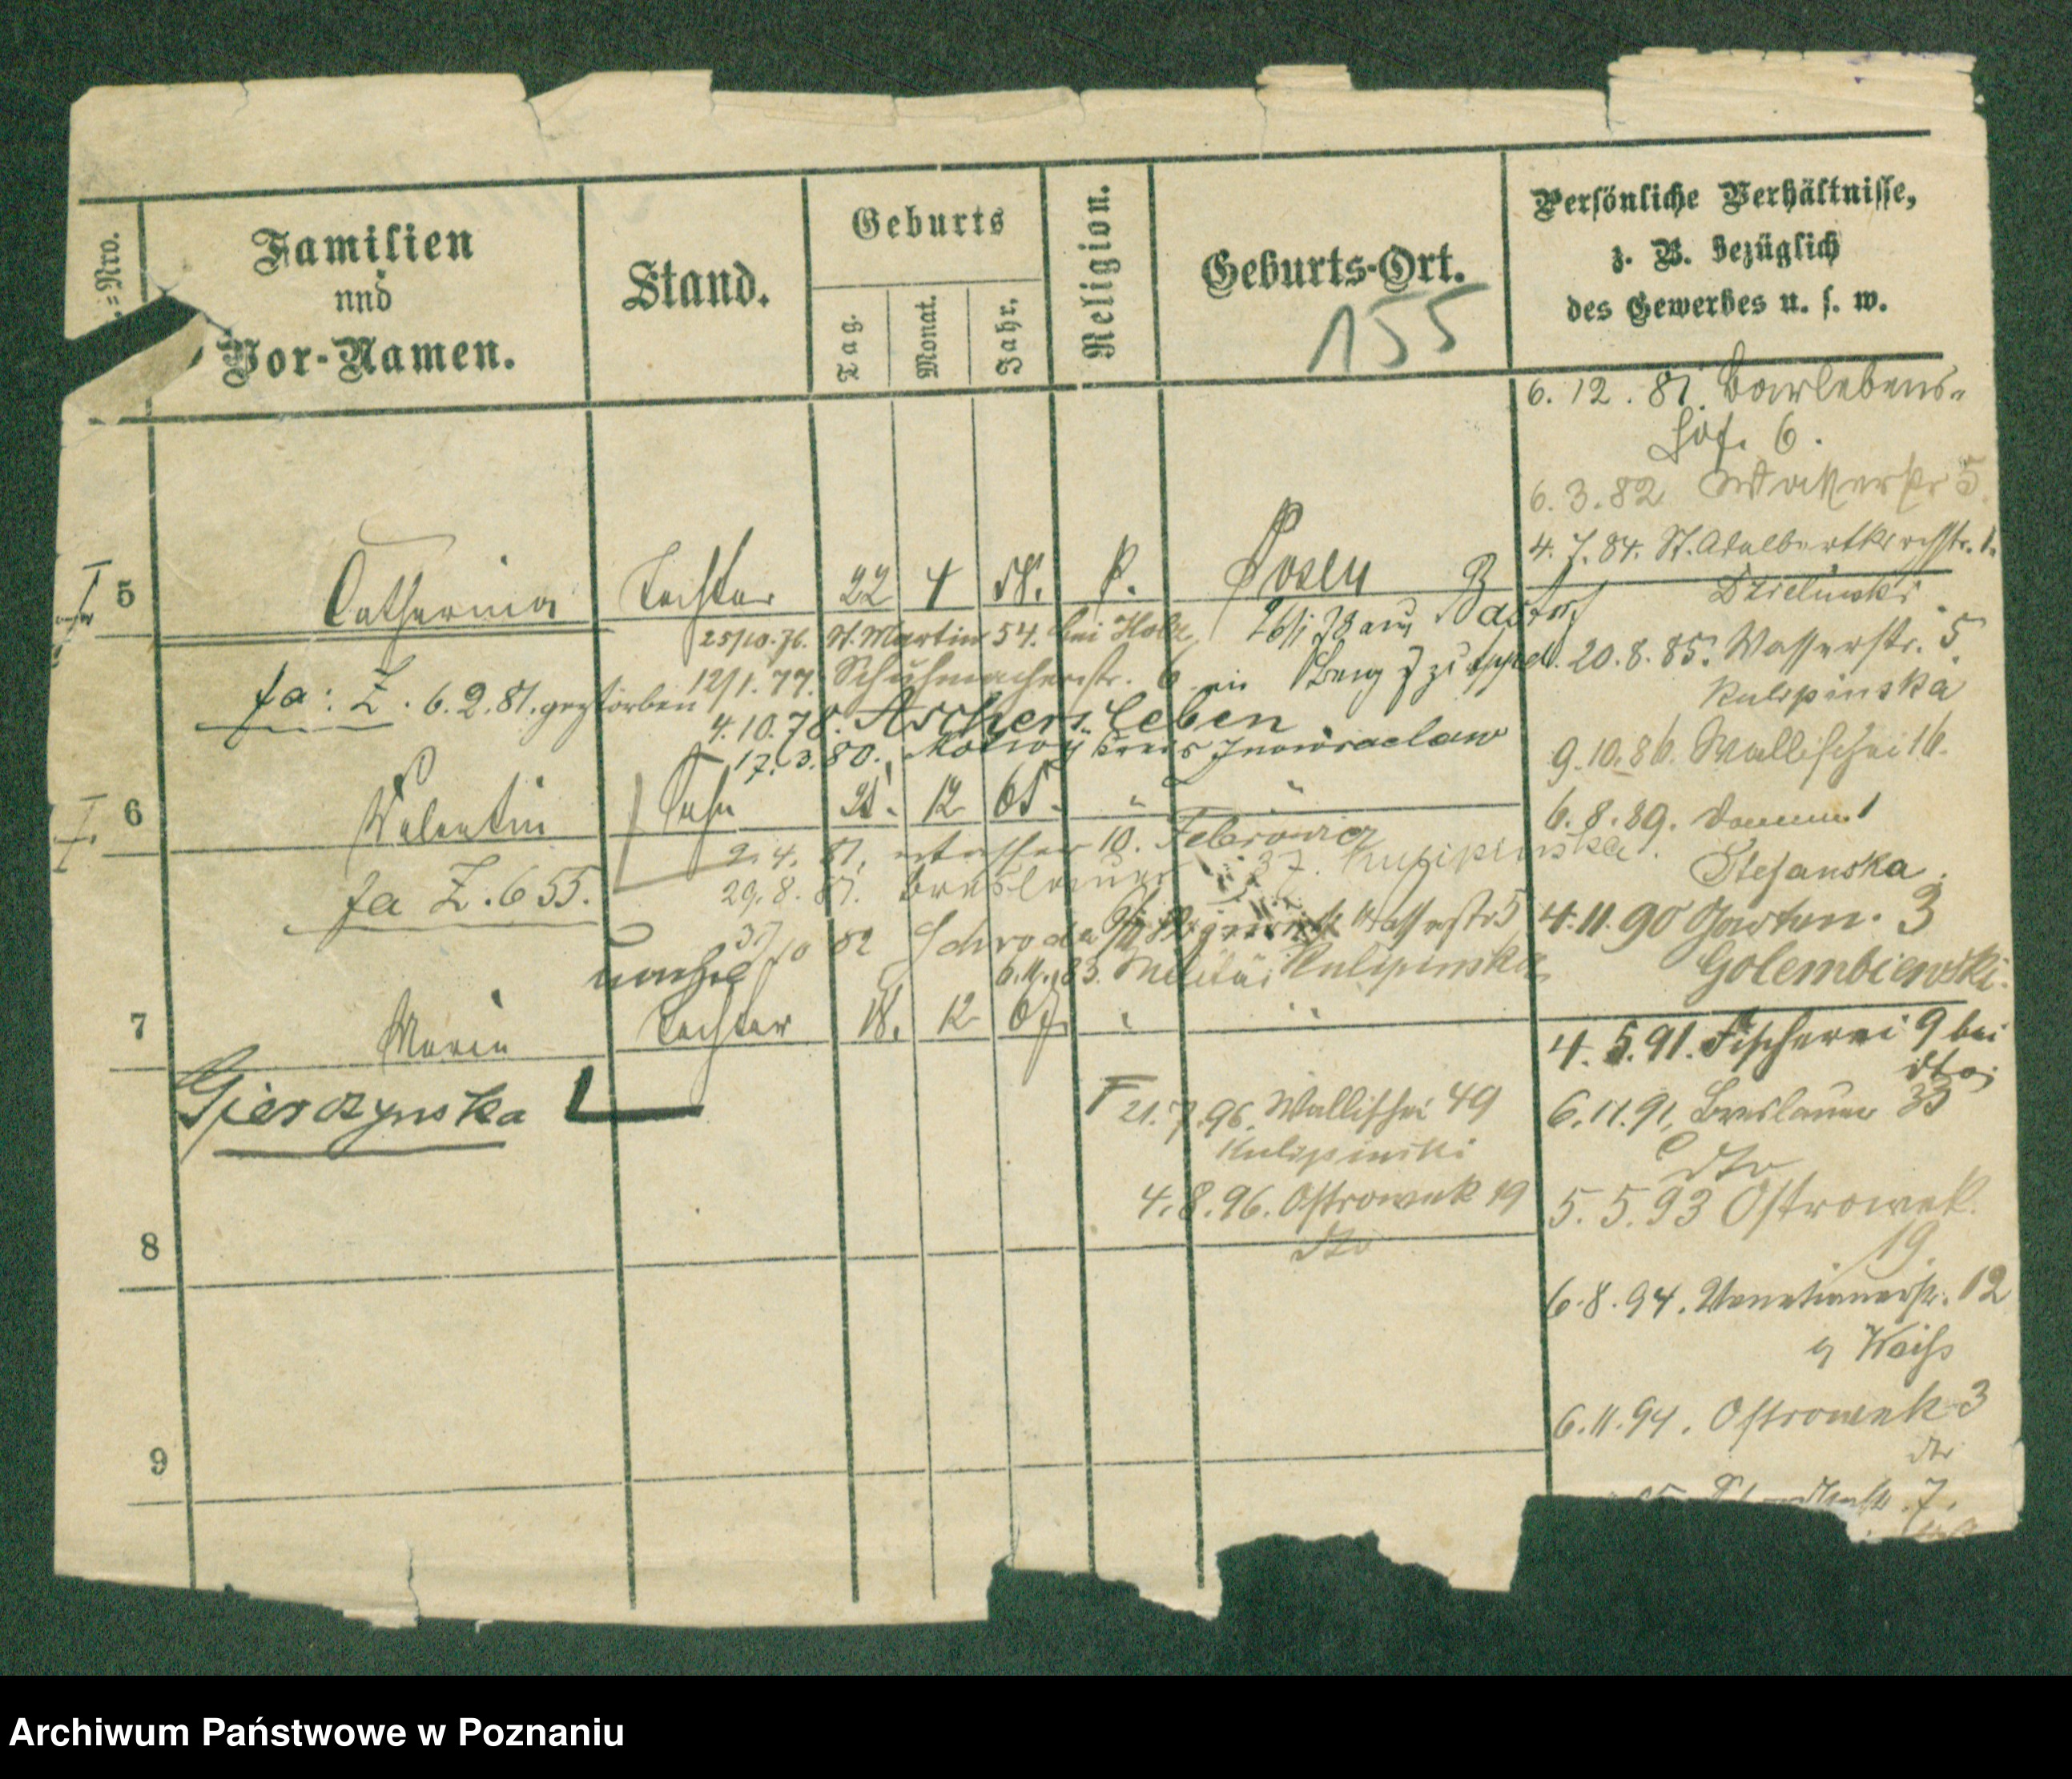 Nro.
Familien
und
Vor-Namen.
Stand.
Geburts
Tag.
Monat.
Jahr.
Religion.
Geburts-Ort.
155
Persönliche Verhältnisse,
z. B. bezüglich
des Gewerbes u. s. w.
6. 12. 81. Barlebens-
hof. 6.
6. 3. 82 5.
4. 7. 84. St. Adalbertkirchstr. 1.
Dzielinski.
5 Catharina Tochter 22 4 58. k. Posen
25/10. 76. St. Martin 54. bei Holz
26/1 78 aus
12/1. 77. Schuhmacherstr. 6
fa: Z. 6. 2. 81. gestorben
4. 10. 78. Aschersleben
17. 3. 80. Kreis Inowraclaw
20. 8. 85. Wasserstr. 5.
Kulipinska
9. 10. 86. Wallischei 16.
6 Valentin Sohn 25. 12 65. " "
2. 4. 81. 10.
29. 8. 81. Breslauer 37. Kulipinska.
fa Z. 655.
6. 8. 89. Damm 1
Stefanska.
10 82 Schroda Wasserstr 5
6. 11. 83. Militär Kulipinska
4. 11. 90 Garten. 3
Golembiewski.
7 Maria Tochter 18. 12 67. " "
Gierczynska
4. 5. 91. Fischerei 9 bei
dto.
6. 11. 91, Breslauer 35
dto
21. 7. 96. Wallischei 49
Kulipinski
4. 8. 96. Ostrowek 19
dto
5. 5. 93 Ostrowek.
19.
8
6. 8. 94. Venetianerstr. 12
Weiss
6. 11. 94. Ostrowek 3
dto
9
7.
Archiwum Państwowe w Poznaniu